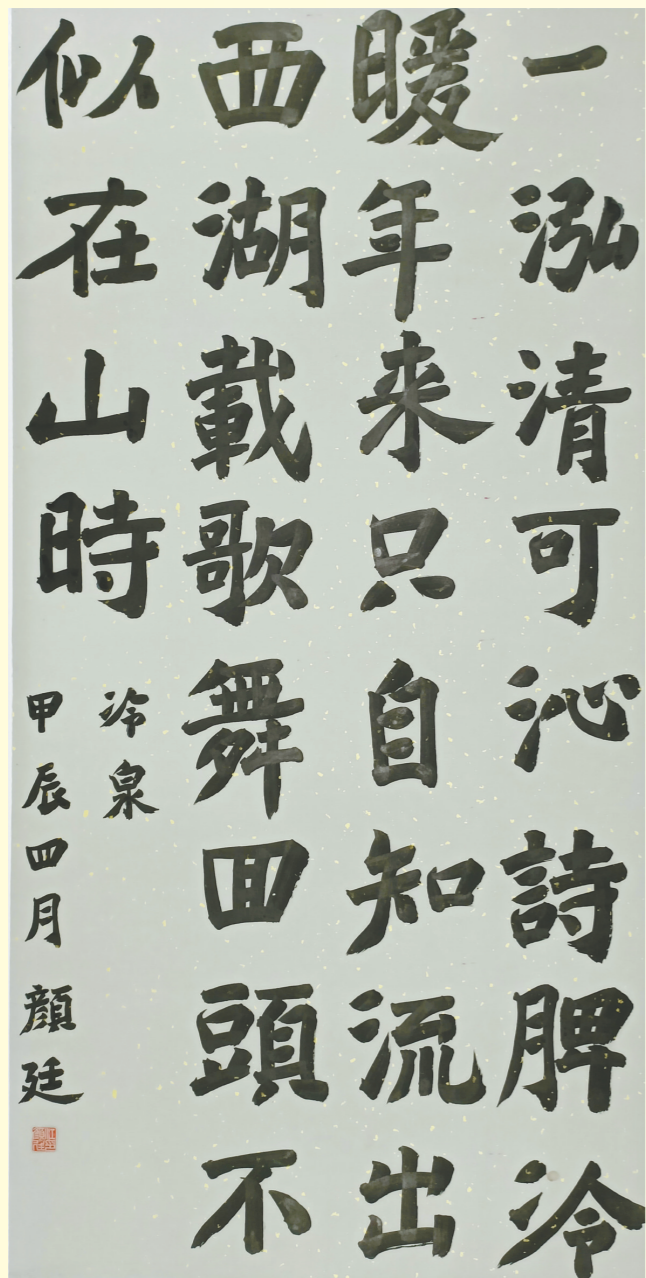 一泓清可沁詩脾冷
暖年來只自知流出
西湖載歌舞回頭不
似在山時
冷泉
甲辰四月顏廷